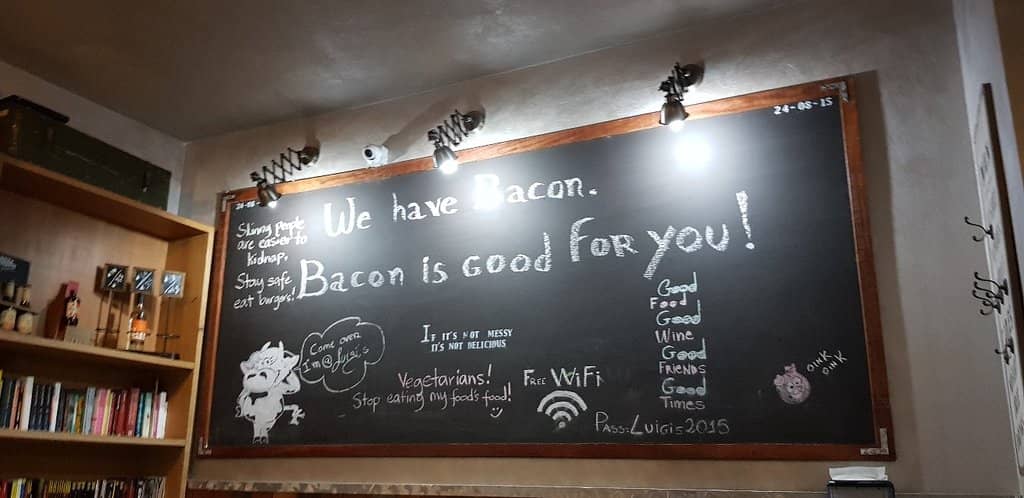 24-08-15
Skinny people
are easier to
kidnap.
Stay safe
eat burgers!
We have Bacon.
Bacon is Good For you!
Come over
I'm @ Luigi's
If it's not messy
it's not delicious
Vegetarians!
Stop eating my food's food!
Free WiFi
Pass:Luigis2015
Good
Food
Good
Wine
Good
Friends
Good
Times
Oink
Oink